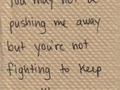 You may not be
pushing me away
but you're not
fighting to keep